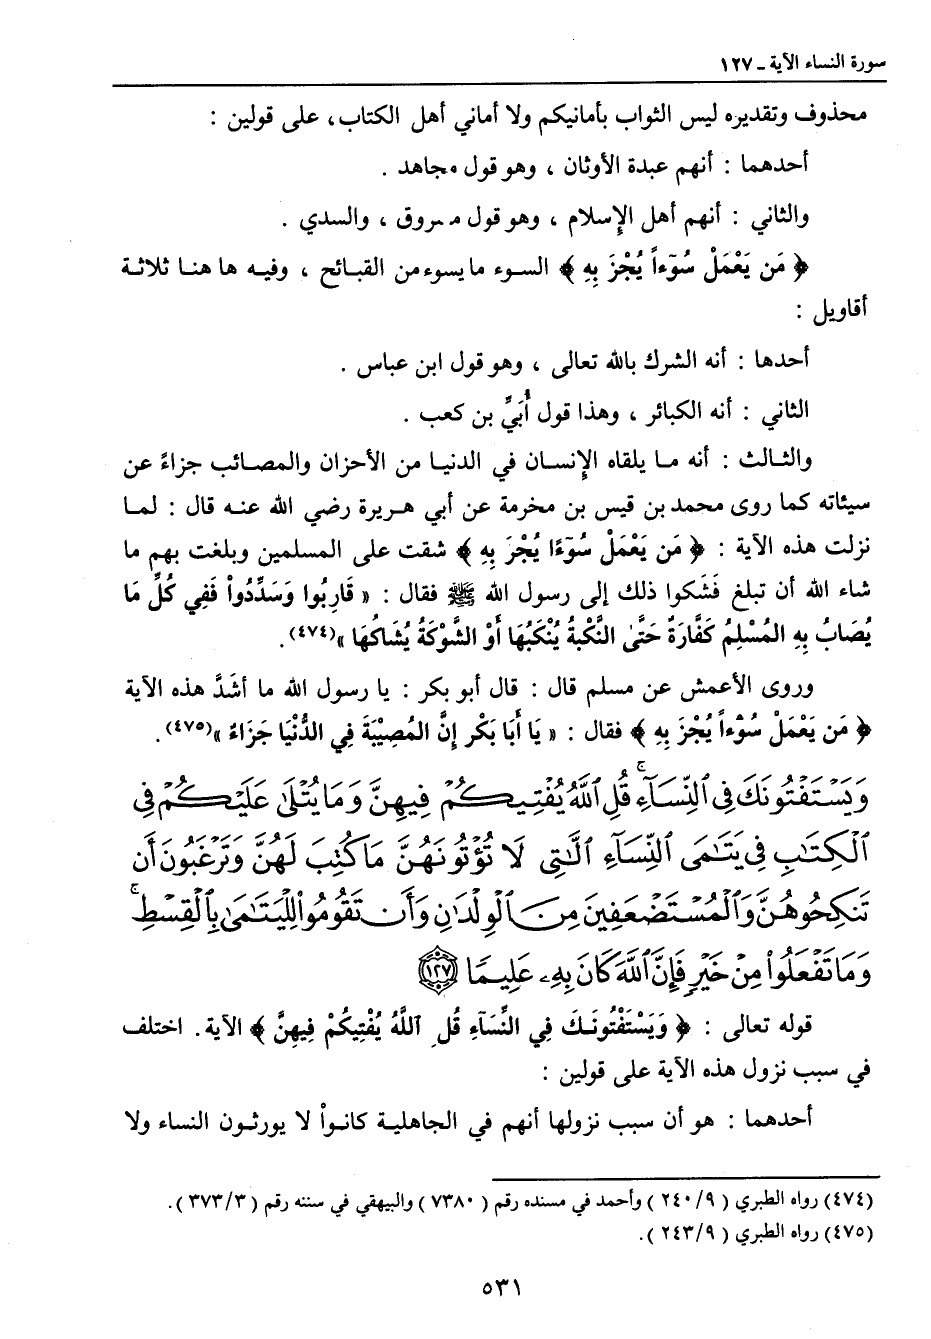 سورة النساء الآية ـ ١٢٧
محذوف وتقديره ليس الثواب بأمانيكم ولا أماني أهل الكتاب، على قولين :
أحدهما : أنهم عبدة الأوثان ، وهو قول مجاهد .
والثاني : أنهم أهل الإسلام ، وهو قول مسروق ، والسدي .
﴿ مَن يَعْمَلْ سُوٓءاً يُجْزَ بِهِ ﴾ السوء ما يسوء من القبائح ، وفيه ها هنا ثلاثة
أقاويل :
أحدها : أنه الشرك بالله تعالى ، وهو قول ابن عباس .
الثاني : أنه الكبائر ، وهذا قول أُبَيِّ بن كعب .
والثالث : أنه ما يلقاه الإنسان في الدنيا من الأحزان والمصائب جزاءً عن
سيئاته كما روى محمد بن قيس بن مخرمة عن أبي هريرة رضي الله عنه قال : لما
نزلت هذه الآية : ﴿ مَن يَعْمَلْ سُوٓءًا يُجْزَ بِهِ ﴾ شقت على المسلمين وبلغت بهم ما
شاء الله أن تبلغ فَشَكوا ذلك إلى رسول الله ﷺ فقال : « قَارِبُوا وَسَدِّدُواْ فَفِي كُلِّ مَا
يُصَابُ بِهِ المُسْلِمُ كَفَّارَةٌ حَتَّىٰ النَّكْبَةُ يُنْكَبُهَا أَوْ الشَّوْكَةُ يُشَاكُهَا »(٤٧٤).
وروى الأعمش عن مسلم قال : قال أبو بكر : يا رسول الله ما أَشَدَّ هذه الآية
﴿ مَن يَعْمَلْ سُوْءاً يُجْزَ بِهِ ﴾ فقال : « يَا أَبَا بَكْر إِنَّ المُصِيْبَةَ فِي الدُّنْيَا جَزَاءٌ »(٤٧٥).
وَيَسْتَفْتُونَكَ فِي ٱلنِّسَآءِ ۖ قُلِ ٱللَّهُ يُفْتِيكُمْ فِيهِنَّ وَمَا يُتْلَىٰ عَلَيْكُمْ فِي
ٱلْكِتَٰبِ فِي يَتَٰمَى ٱلنِّسَآءِ ٱلَّٰتِي لَا تُؤْتُونَهُنَّ مَا كُتِبَ لَهُنَّ وَتَرْغَبُونَ أَن
تَنكِحُوهُنَّ وَٱلْمُسْتَضْعَفِينَ مِنَ ٱلْوِلْدَٰنِ وَأَن تَقُومُواْ لِلْيَتَٰمَىٰ بِٱلْقِسْطِ ۚ
وَمَا تَفْعَلُواْ مِنْ خَيْرٍ فَإِنَّ ٱللَّهَ كَانَ بِهِۦ عَلِيمًا ١٢٧
قوله تعالى : ﴿ وَيَسْتَفْتُونَكَ فِي النِّسَآءِ قُلِ ٱللَّهُ يُفْتِيكُمْ فِيهِنَّ ﴾ الآية. اختلف
في سبب نزول هذه الآية على قولين :
أحدهما : هو أن سبب نزولها أنهم في الجاهلية كانواْ لا يورثون النساء ولا
(٤٧٤) رواه الطبري ( ٢٤٠/٩ ) وأحمد في مسنده رقم ( ٧٣٨٠ ) والبيهقي في سننه رقم ( ٣٧٣/٣ ).
(٤٧٥) رواه الطبري ( ٢٤٣/٩ ).
٥٣١